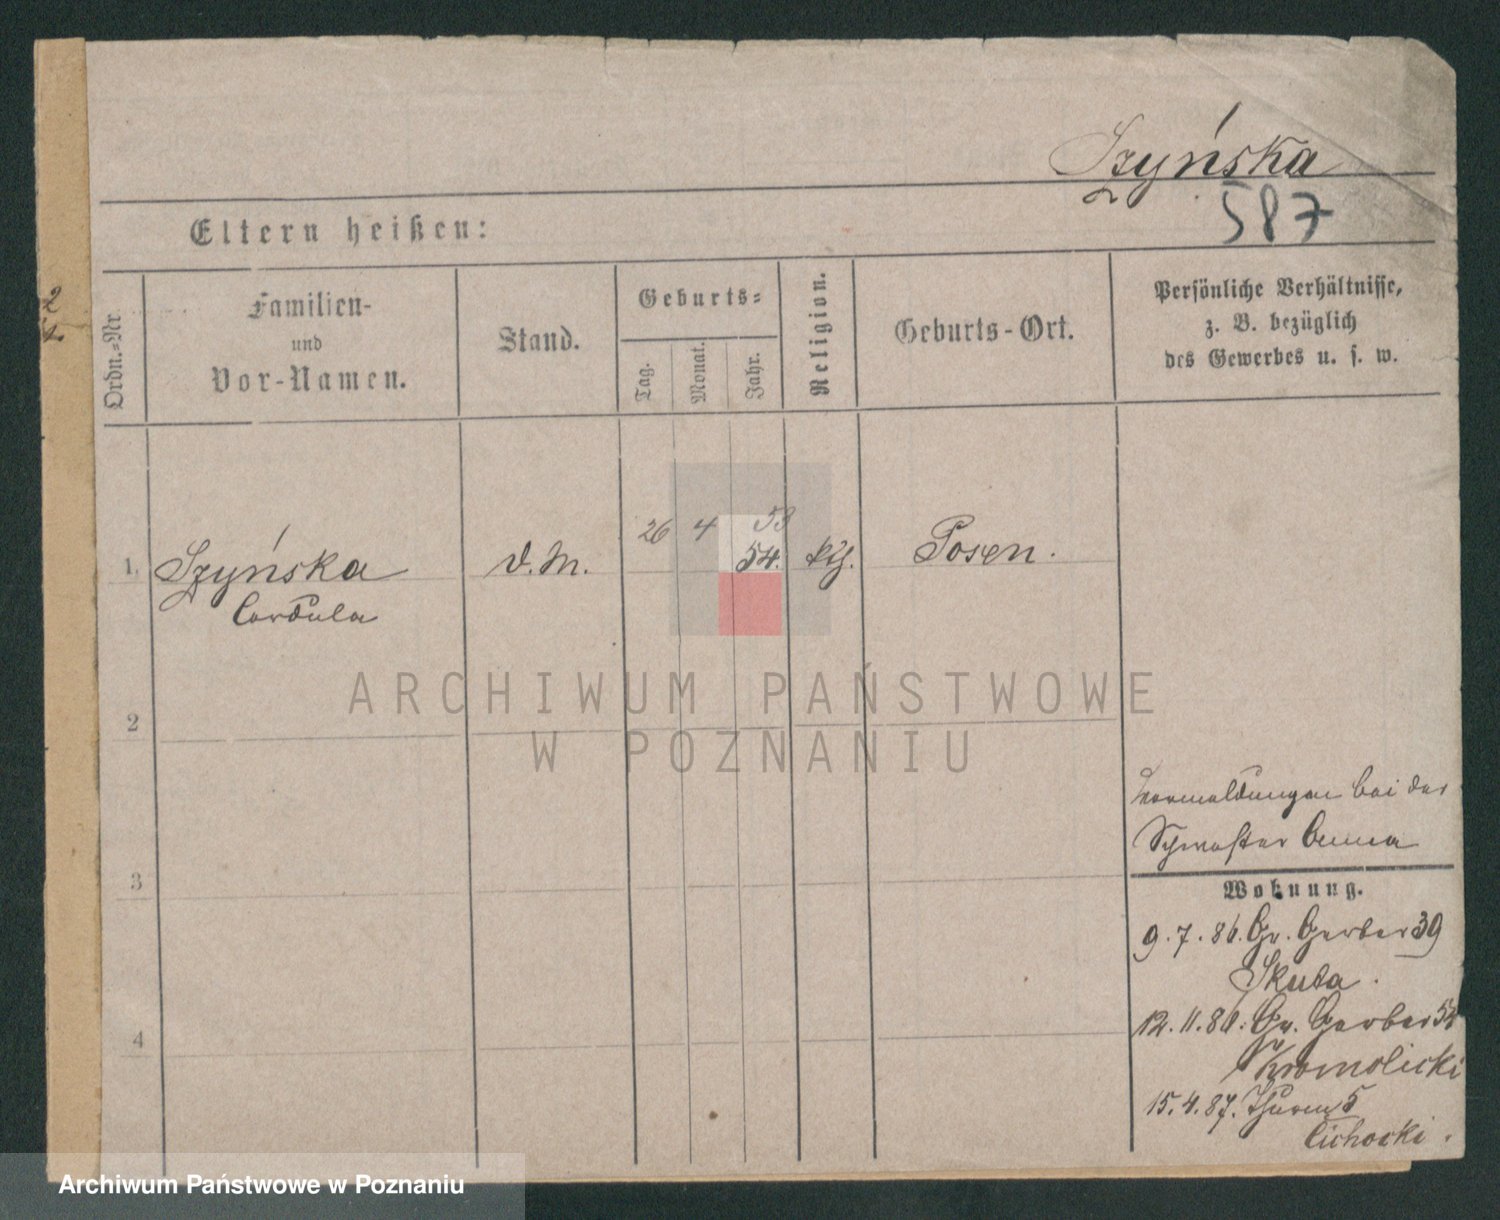 Szyńska
587
Eltern heißen:
Ordn.-Nr
Familien-
und
Vor-Namen.
Stand.
Geburts-
Tag.
Monat.
Jahr.
Religion.
Geburts-Ort.
Persönliche Verhältnisse,
z. B. bezüglich
des Gewerbes u. s. w.
26 4 53
1. Szyńska D. M. 54. kth. Posen.
Cordula
2
3
4
Vormeldungen bei der
Schwester Anna
Wohnung.
9.7.86. Gr. Gerber 39
Skuta.
12.11.86. Gr. Gerber 54
Kromolicki
15.4.87. Thurm 5
Cichocki.
ARCHIWUM PAŃSTWOWE
W POZNANIU
Archiwum Państwowe w Poznaniu